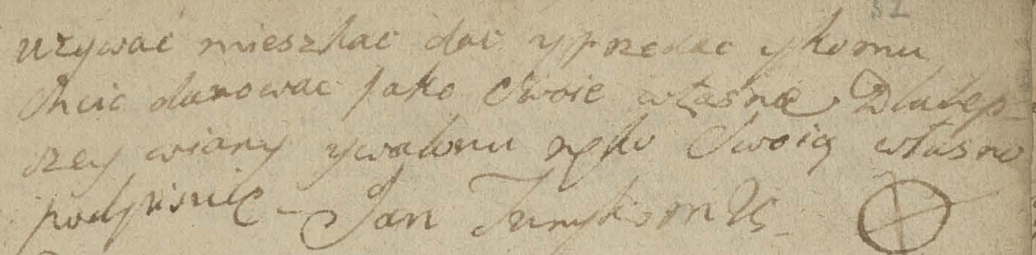 używać mieszkać dać y przedac ykomu
chcic darować jako swoie własne Dla lep-
szey wiary ywaloru ręko swoią własno
podpisuię Jan